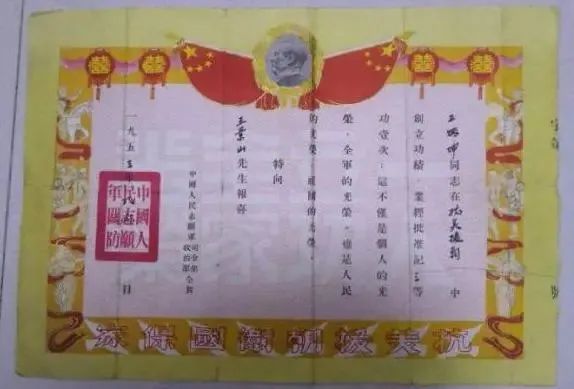 同志在抗美援朝中
創立功績，業經批准記三等
功壹次；這不僅是個人的光
榮，全軍的光榮，也是人民
的光榮，祖國的光榮。
特向
王業山先生報喜
中國人民志願軍
一九五三年 日
中國人
民志願
軍國防
抗美援朝衛國保家